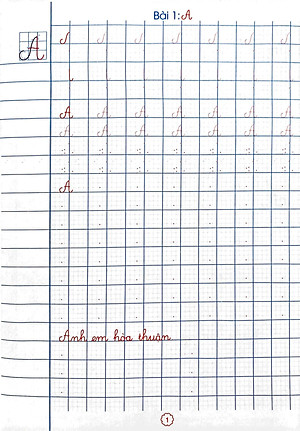 Bài 1: A
A
A A A A A A A
A A A A A A A
A
Anh em hòa thuận
1